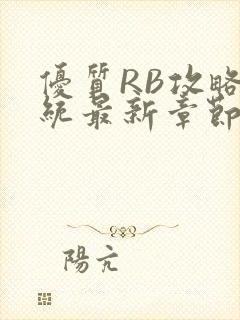 優質RB攻略
統最新章節
陽亢